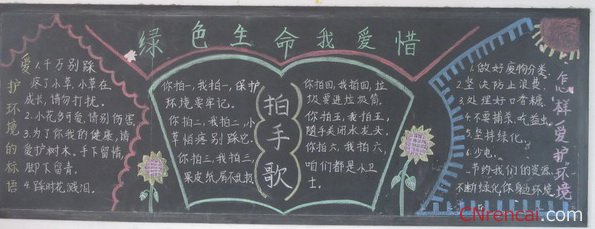 绿色生命我爱惜
爱护环境的标语
1.千万别踩
疼了小草,小草在
成长,请勿打扰。
2.小花多可爱,请别伤害
3.为了你我的健康,请
爱护树木。手下留情,
脚下留青。
4.踩时花溅泪。
拍手歌
你拍一,我拍一,保护
环境要牢记。
你拍二,我拍二,小
草怕疼别踩它。
你拍三,我拍三,
果皮纸屑不乱扔
你拍四,我拍四,垃
圾要进垃圾筒。
你拍五,我拍五,
随手关闭水龙头。
你拍六,我拍六,
咱们都是小卫
士。
怎样爱护环境
1.做好废物分类。
2.坚决防止浪费。
3.处理好口香糖。
4.不要捕杀吃益虫。
5.坚持绿化。
6.少电。
节约我们的资源,
不断绿化你身边环境
CNrencai.com